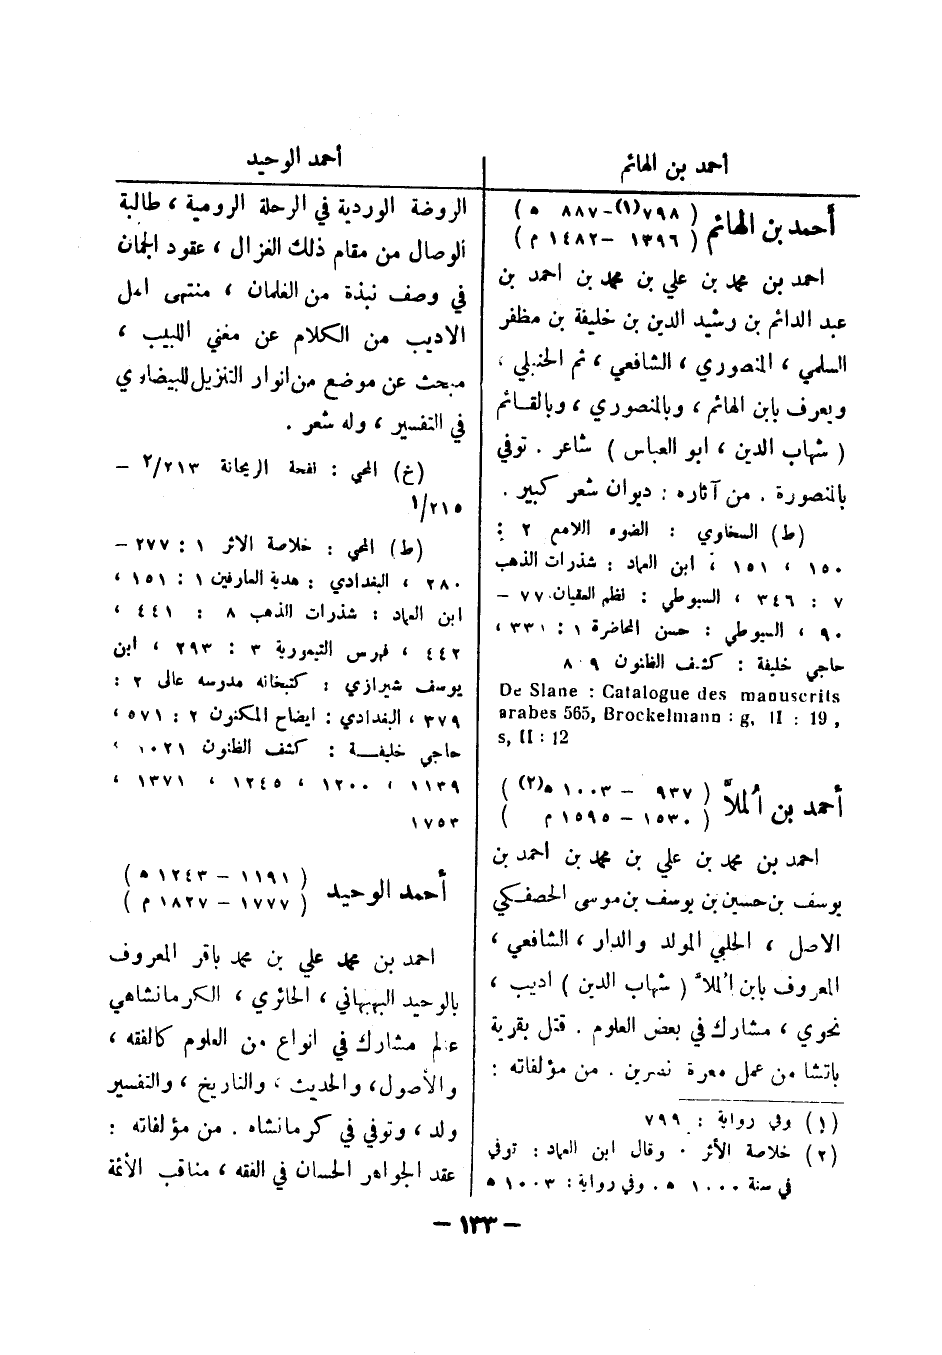 أحمد بن الهائم
أحمد بن الهائم ( ٧٩٨(١)-٨٨٧ ه )
( ١٣٩٦ - ١٤٨٢ م )
احمد بن محمد بن علي بن محمد بن احمد بن
عبد الدائم بن رشيد الدين بن خليفة بن مظفر
السلمي ، المنصوري ، الشافعي ، ثم الحنبلي ،
ويعرف بابن الهائم ، وبالمنصوري ، وبالقائم
( شهاب الدين ، ابو العباس ) شاعر . توفي
بالمنصورة . من آثاره : ديوان شعر كبير .
(ط) السخاوي : الضوء اللامع ٢ :
١٥٠ ، ١٥١ ، ابن العماد : شذرات الذهب
٧ : ٣٤٦ ، السيوطي : نظم العقيان ٧٧ -
٩٠ ، السيوطي : حسن المحاضرة ١ : ٣٣١ ،
حاجي خليفة : كشف الظنون
De Slane : Catalogue des manuscrits
arabes 565, Brockelmann : g, II : 19 ,
s, II : 12
أحمد بن المُلاَّ ( ٩٣٧ - ١٠٠٣ ه(٢) )
( ١٥٣٠ - ١٥٩٥ م )
احمد بن محمد بن علي بن محمد بن احمد بن
يوسف بن حسين بن يوسف بن موسى الحصفكي
الاصل ، الحلبي المولد والدار ، الشافعي ،
المعروف بابن المُلاَّ ( شهاب الدين ) اديب ،
نحوي ، مشارك في بعض العلوم . قتل بقرية
باتشا من عمل معرة نصرين . من مؤلفاته :
(١) وفي رواية : ٧٩٩
(٢) خلاصة الأثر . وقال ابن العماد : توفي
في سنة ١٠٠٠ ه . وفي رواية : ١٠٠٣ ه
أحمد الوحيد
الروضة الوردية في الرحلة الرومية ، طالبة
الوصال من مقام ذلك الغزال ، عقود الجمان
في وصف نبذة من الغلمان ، منتهى امل
الاديب من الكلام عن مغني اللبيب ،
مبحث عن موضع من انوار التنزيل للبيضاوي
في التفسير ، وله شعر .
(خ) المحبي : نفحة الريحانة ٢/٢١٣ -
١/٢١٥
(ط) المحبي : خلاصة الاثر ١ : ٢٧٧ -
٢٨٠ ، البغدادي : هدية العارفين ١ : ١٥١ ،
ابن العماد : شذرات الذهب ٨ : ٤٤١ ،
٤٤٢ ، فهرس التيمورية ٣ : ٢٩٣ ، ابن
يوسف شيرازي : كتبخانه مدرسه عالى ٢ :
٣٧٩ ، البغدادي : ايضاح المكنون ٢ : ٥٧١ ،
حاجي خليفة : كشف الظنون ١٠٢١ ،
١١٣٩ ، ١٢٠٠ ، ١٢٤٥ ، ١٣٧١ ،
١٧٥٣
أحمد الوحيد ( ١١٩١ - ١٢٤٣ ه )
( ١٧٧٧ - ١٨٢٧ م )
احمد بن محمد علي بن محمد باقر المعروف
بالوحيد البهبهاني ، الحائري ، الكرمانشاهي
عالم مشارك في انواع من العلوم كالفقه ،
والأصول، والحديث ، والتاريخ ، والتفسير
ولد ، وتوفي في كرمانشاه . من مؤلفاته :
عقد الجواهر الحسان في الفقه ، مناقب الأئمة
- ١٣٣ -